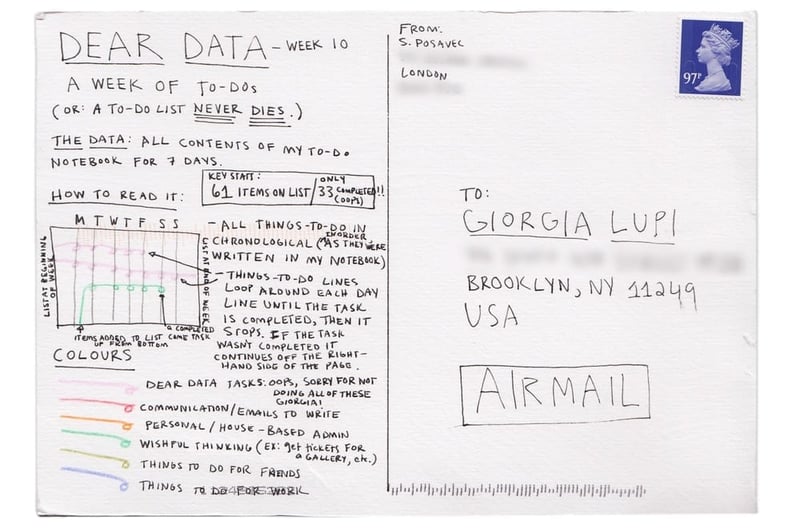 DEAR DATA - WEEK 10
A WEEK OF TO-DOS
(OR: A TO-DO LIST NEVER DIES.)
THE DATA: ALL CONTENTS OF MY TO-DO
NOTEBOOK FOR 7 DAYS.
KEY STATS:
61 ITEMS ON LIST / ONLY 33 COMPLETED!! (OOPS)
HOW TO READ IT:
M T W T F S S
LIST AT BEGINNING OF WEEK
LIST AT END OF WEEK
ITEMS ADDED TO LIST COME UP FROM BOTTOM
A COMPLETED TASK
- ALL THINGS-TO-DO IN
CHRONOLOGICAL ORDER (AS THEY WERE
WRITTEN IN MY NOTEBOOK)
- THINGS-TO-DO LINES
LOOP AROUND EACH DAY
LINE UNTIL THE TASK
IS COMPLETED, THEN IT
STOPS. IF THE TASK
WASN'T COMPLETED IT
CONTINUES OFF THE RIGHT-
HAND SIDE OF THE PAGE.
COLOURS
DEAR DATA TASKS: OOPS, SORRY FOR NOT
DOING ALL OF THESE
GIORGIA!
COMMUNICATION/EMAILS TO WRITE
PERSONAL / HOUSE-BASED ADMIN
WISHFUL THINKING (EX: get TICKETS FOR
a GALLERY, etc.)
THINGS TO DO FOR FRIENDS
THINGS TO DO FOR WORK
FROM:
S. POSAVEC
LONDON
97P
TO:
GIORGIA LUPI
BROOKLYN, NY 11249
USA
AIRMAIL